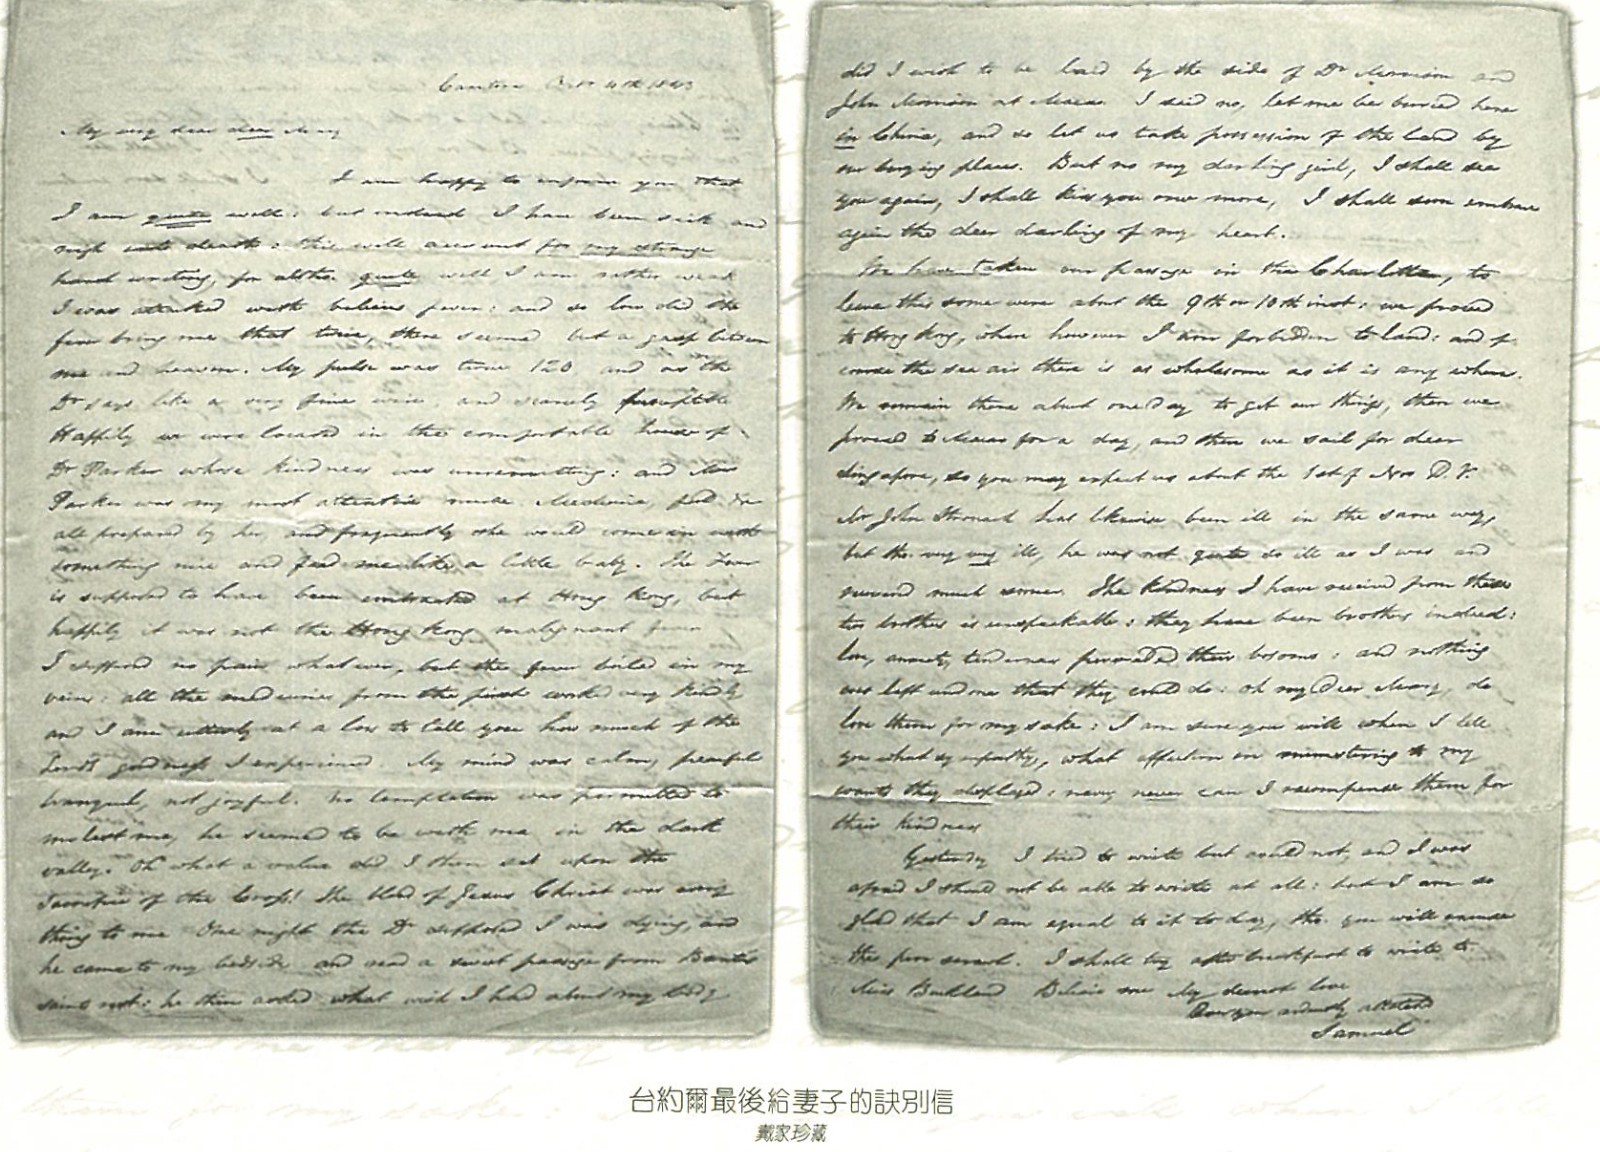 Canton Octr 4th 1843
My very dear dear Mary
I am happy to inform you that
I am quite well: but indeed I have been sick and
nigh unto death: this will account for my strange
hand writing, for altho. quite well I am rather weak
I was attacked with bilious fever: and so low did the
fever bring me that twice, there seemed but a gasp between
me and heaven. My pulse was twice 120 and as the
Dr says like a very fine wire, and scarcely perceptible
Happily we were located in the comfortable house of
Dr Parker whose kindness was unremitting: and Mrs
Parker was my most attentive nurse. Medicine, food &c
all prepared by her, and frequently she would come in with
something nice and feed me like a little baby. The Fever
is supposed to have been contracted at Hong Kong, but
happily it was not the Hong Kong malignant fever
I suffered no pain whatever, but the fever boiled in my
veins: all the medicines from the first worked very kindly
and I am utterly at a loss to tell you how much of the
Lord's goodness I experienced. My mind was calm, peaceful
tranquil, not joyful. No temptation was permitted to
molest me, he seemed to be with me in the dark
valley. Oh what a value did I then set upon the
Sacrifice of the Cross! The blood of Jesus Christ was every
thing to me One night the Dr supposed I was dying, and
he came to my bedside and read a sweet passage from Baxter's
saints rest: he then asked what wish I had about my body
did I wish to be laid by the side of Dr Morrison and
John Morrison at Macao. I said no, let me be buried here
in China, and so let us take possession of the land by
our burying places. But no my darling girl, I shall see
you again, I shall kiss you once more, I shall soon embrace
again the dear darling of my heart.
We have taken our passage in the Charlotte, to
leave this some where about the 9th or 10th inst: we proceed
to Hong Kong, where however I am forbidden to land: and of
course the sea air there is as wholesome as it is any where.
We remain there about one day to get our things, then we
proceed to Macao for a day, and then we sail for dear
Singapore, so you may expect us about the 1st of Nov D.V.
Mr John Stronach has likewise been ill in the same way,
but tho. very very ill, he was not quite so ill as I was and
recovered much sooner. The kindness I have received from these
two brothers is unspeakable: they have been brothers indeed:
love, anxiety, tenderness pervaded their bosoms: and nothing
was left undone that they could do: oh my Dear Mary, do
love them for my sake: I am sure you will when I tell
you what sympathy, what affection in ministering to my
wants they displayed: never never can I recompense them for
their kindness
Yesterday I tried to write but could not, and I was
afraid I should not be able to write at all: but I am so
glad that I am equal to it to day, tho. you will excuse
this poor scrawl. I shall try after breakfast to write to
Miss Buckland Believe me My dearest love
Ever your ardently attached
Samuel
台約爾最後給妻子的訣別信
戴家珍藏